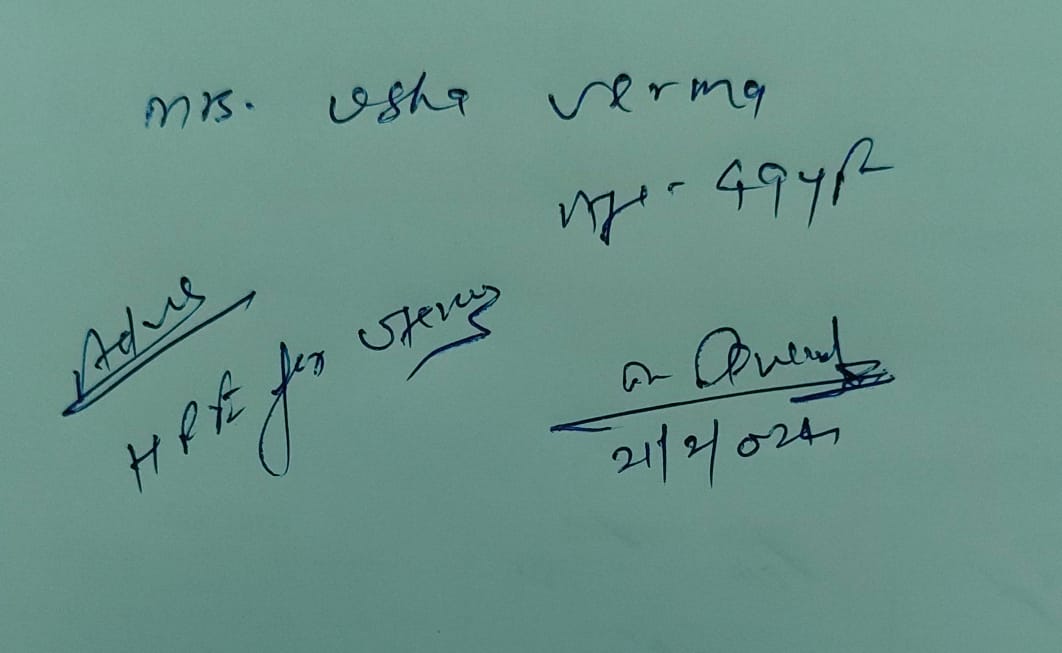 Mrs. Usha Verma
Age - 49 yr
Advise
HPE for uterus
Dr
21/2/024